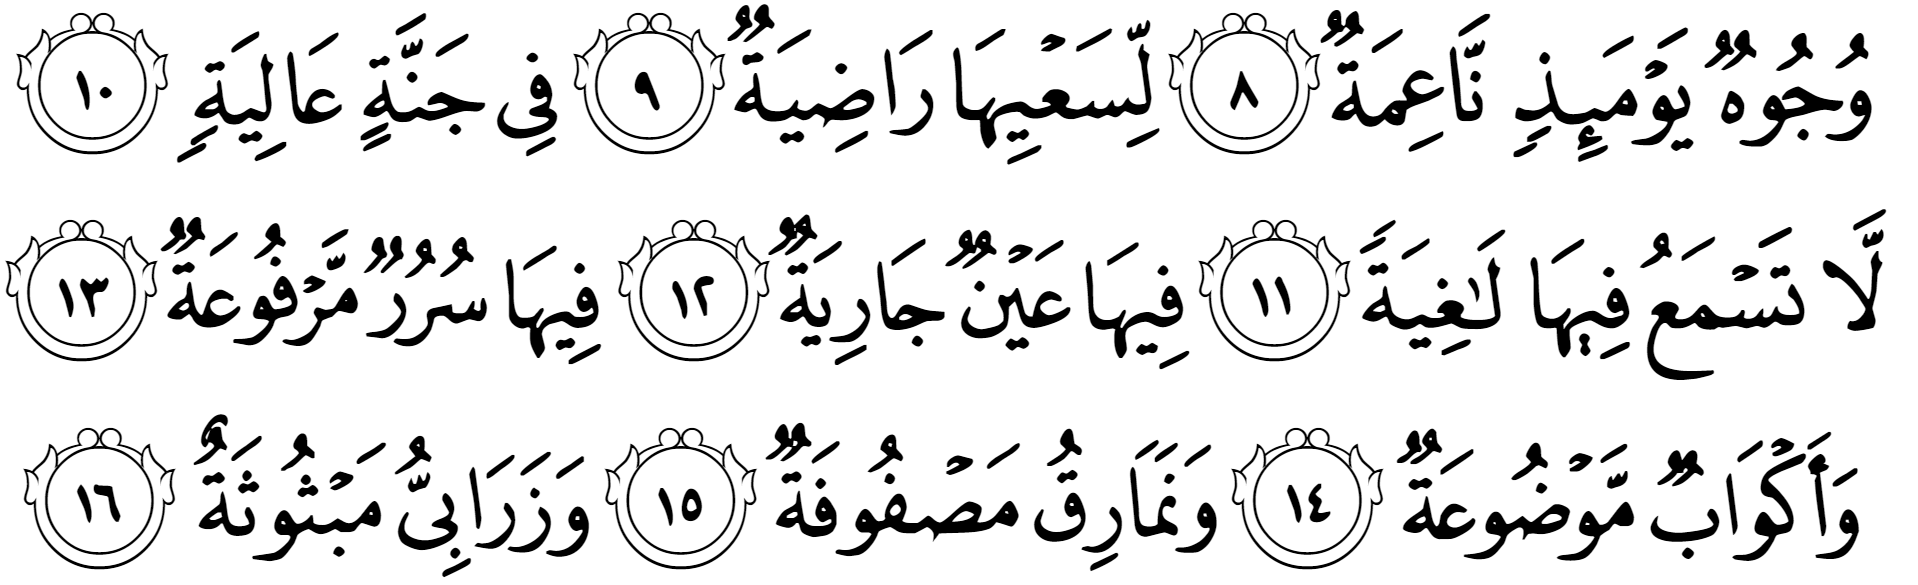 وُجُوهٌ يَوْمَئِذٍ نَّاعِمَةٌ ٨ لِّسَعْيِهَا رَاضِيَةٌ ٩ فِي جَنَّةٍ عَالِيَةٍ ١٠
لَّا تَسْمَعُ فِيهَا لَـٰغِيَةً ١١ فِيهَا عَيْنٌ جَارِيَةٌ ١٢ فِيهَا سُرُرٌ مَّرْفُوعَةٌ ١٣
وَأَكْوَابٌ مَّوْضُوعَةٌ ١٤ وَنَمَارِقُ مَصْفُوفَةٌ ١٥ وَزَرَابِىُّ مَبْثُوثَةٌ ١٦